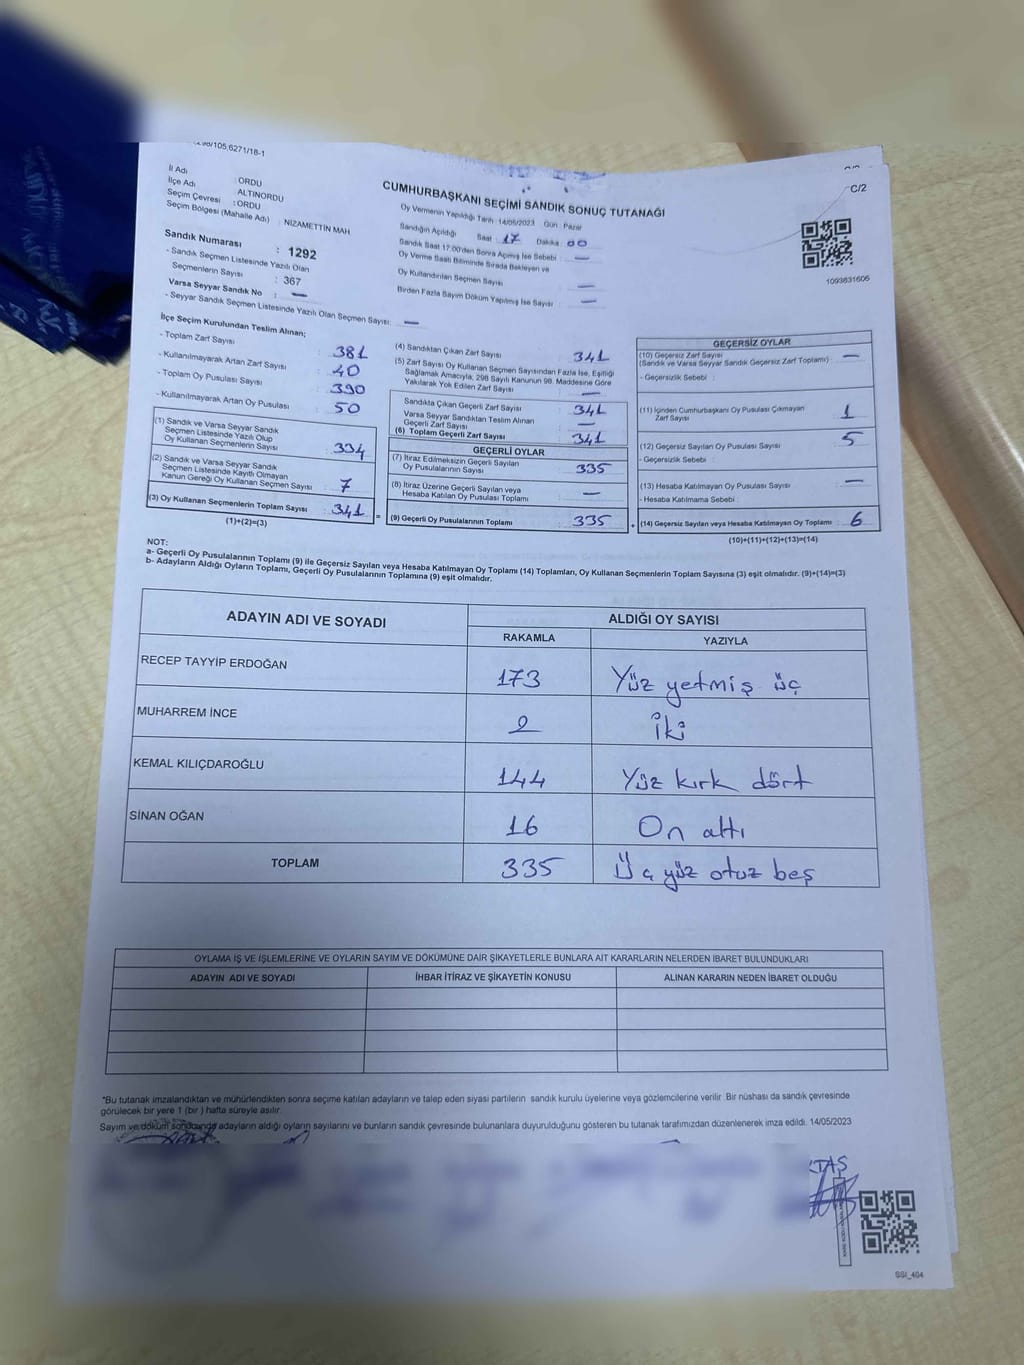 298/105,6271/18-1
C/2
İl Adı : ORDU
İlçe Adı : ALTINORDU
Seçim Çevresi : ORDU
Seçim Bölgesi (Mahalle Adı) : NİZAMETTİN MAH
Sandık Numarası : 1292
- Sandık Seçmen Listesinde Yazılı Olan
Seçmenlerin Sayısı : 367
Varsa Seyyar Sandık No : —
- Seyyar Sandık Seçmen Listesinde Yazılı Olan Seçmen Sayısı: —
CUMHURBAŞKANI SEÇİMİ SANDIK SONUÇ TUTANAĞI
Oy Vermenin Yapıldığı Tarih :14/05/2023 Gün : Pazar
Sandığın Açıldığı Saat : 17 Dakika : 00
Sandık Saat 17:00'den Sonra Açılmış İse Sebebi : —
Oy Verme Saati Bitiminde Sırada Bekleyen ve
Oy Kullandırılan Seçmen Sayısı : —
Birden Fazla Sayım Döküm Yapılmış İse Sayısı : —
1093831606
İlçe Seçim Kurulundan Teslim Alınan;
- Toplam Zarf Sayısı : 381
- Kullanılmayarak Artan Zarf Sayısı : 40
- Toplam Oy Pusulası Sayısı : 390
- Kullanılmayarak Artan Oy Pusulası : 50
(1) Sandık ve Varsa Seyyar Sandık
Seçmen Listesinde Yazılı Olup
Oy Kullanan Seçmenlerin Sayısı : 334
(2) Sandık ve Varsa Seyyar Sandık
Seçmen Listesinde Kayıtlı Olmayan
Kanun Gereği Oy Kullanan Seçmen Sayısı : 7
(3) Oy Kullanan Seçmenlerin Toplam Sayısı : 341
(1)+(2)=(3)
(4) Sandıktan Çıkan Zarf Sayısı : 341
(5) Zarf Sayısı Oy Kullanan Seçmen Sayısından Fazla İse, Eşitliği
Sağlamak Amacıyla, 298 Sayılı Kanunun 98. Maddesine Göre
Yakılarak Yok Edilen Zarf Sayısı : —
Sandıkta Çıkan Geçerli Zarf Sayısı : 341
Varsa Seyyar Sandıktan Teslim Alınan
Geçerli Zarf Sayısı : —
(6) Toplam Geçerli Zarf Sayısı : 341
GEÇERLİ OYLAR
(7) İtiraz Edilmeksizin Geçerli Sayılan
Oy Pusulalarının Sayısı : 335
(8) İtiraz Üzerine Geçerli Sayılan veya
Hesaba Katılan Oy Pusulası Toplamı : —
= (9) Geçerli Oy Pusulalarının Toplamı : 335
GEÇERSİZ OYLAR
(10) Geçersiz Zarf Sayısı
(Sandık ve Varsa Seyyar Sandık Geçersiz Zarf Toplamı) : —
- Geçersizlik Sebebi :
(11) İçinden Cumhurbaşkanı Oy Pusulası Çıkmayan
Zarf Sayısı : 1
(12) Geçersiz Sayılan Oy Pusulası Sayısı : 5
- Geçersizlik Sebebi :
(13) Hesaba Katılmayan Oy Pusulası Sayısı : —
- Hesaba Katılmama Sebebi :
+ (14) Geçersiz Sayılan veya Hesaba Katılmayan Oy Toplamı : 6
(10)+(11)+(12)+(13)=(14)
NOT:
a- Geçerli Oy Pusulalarının Toplamı (9) ile Geçersiz Sayılan veya Hesaba Katılmayan Oy Toplamı (14) Toplamları, Oy Kullanan Seçmenlerin Toplam Sayısına (3) eşit olmalıdır. (9)+(14)=(3)
b- Adayların Aldığı Oyların Toplamı, Geçerli Oy Pusulalarının Toplamına (9) eşit olmalıdır.
ADAYIN ADI VE SOYADI
ALDIĞI OY SAYISI
RAKAMLA YAZIYLA
RECEP TAYYİP ERDOĞAN 173 Yüz yetmiş üç
MUHARREM İNCE 2 İki
KEMAL KILIÇDAROĞLU 144 Yüz kırk dört
SİNAN OĞAN 16 On altı
TOPLAM 335 Üç yüz otuz beş
OYLAMA İŞ VE İŞLEMLERİNE VE OYLARIN SAYIM VE DÖKÜMÜNE DAİR ŞİKAYETLERLE BUNLARA AİT KARARLARIN NELERDEN İBARET BULUNDUKLARI
ADAYIN ADI VE SOYADI İHBAR İTİRAZ VE ŞİKAYETİN KONUSU ALINAN KARARIN NEDEN İBARET OLDUĞU
*Bu tutanak imzalandıktan ve mühürlendikten sonra seçime katılan adayların ve talep eden siyasi partilerin sandık kurulu üyelerine veya gözlemcilerine verilir. Bir nüshası da sandık çevresinde
görülecek bir yere 1 (bir ) hafta süreyle asılır.
Sayım ve döküm sonucunda adayların aldığı oyların sayılarını ve bunların sandık çevresinde bulunanlara duyurulduğunu gösteren bu tutanak tarafımızdan düzenlenerek imza edildi. 14/05/2023
SSI_404